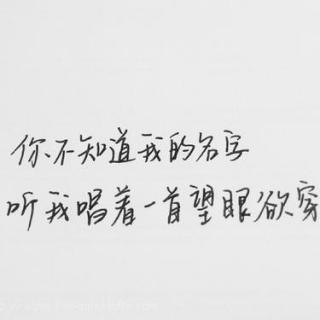 你不知道我的名字
听我唱着一首望眼欲穿